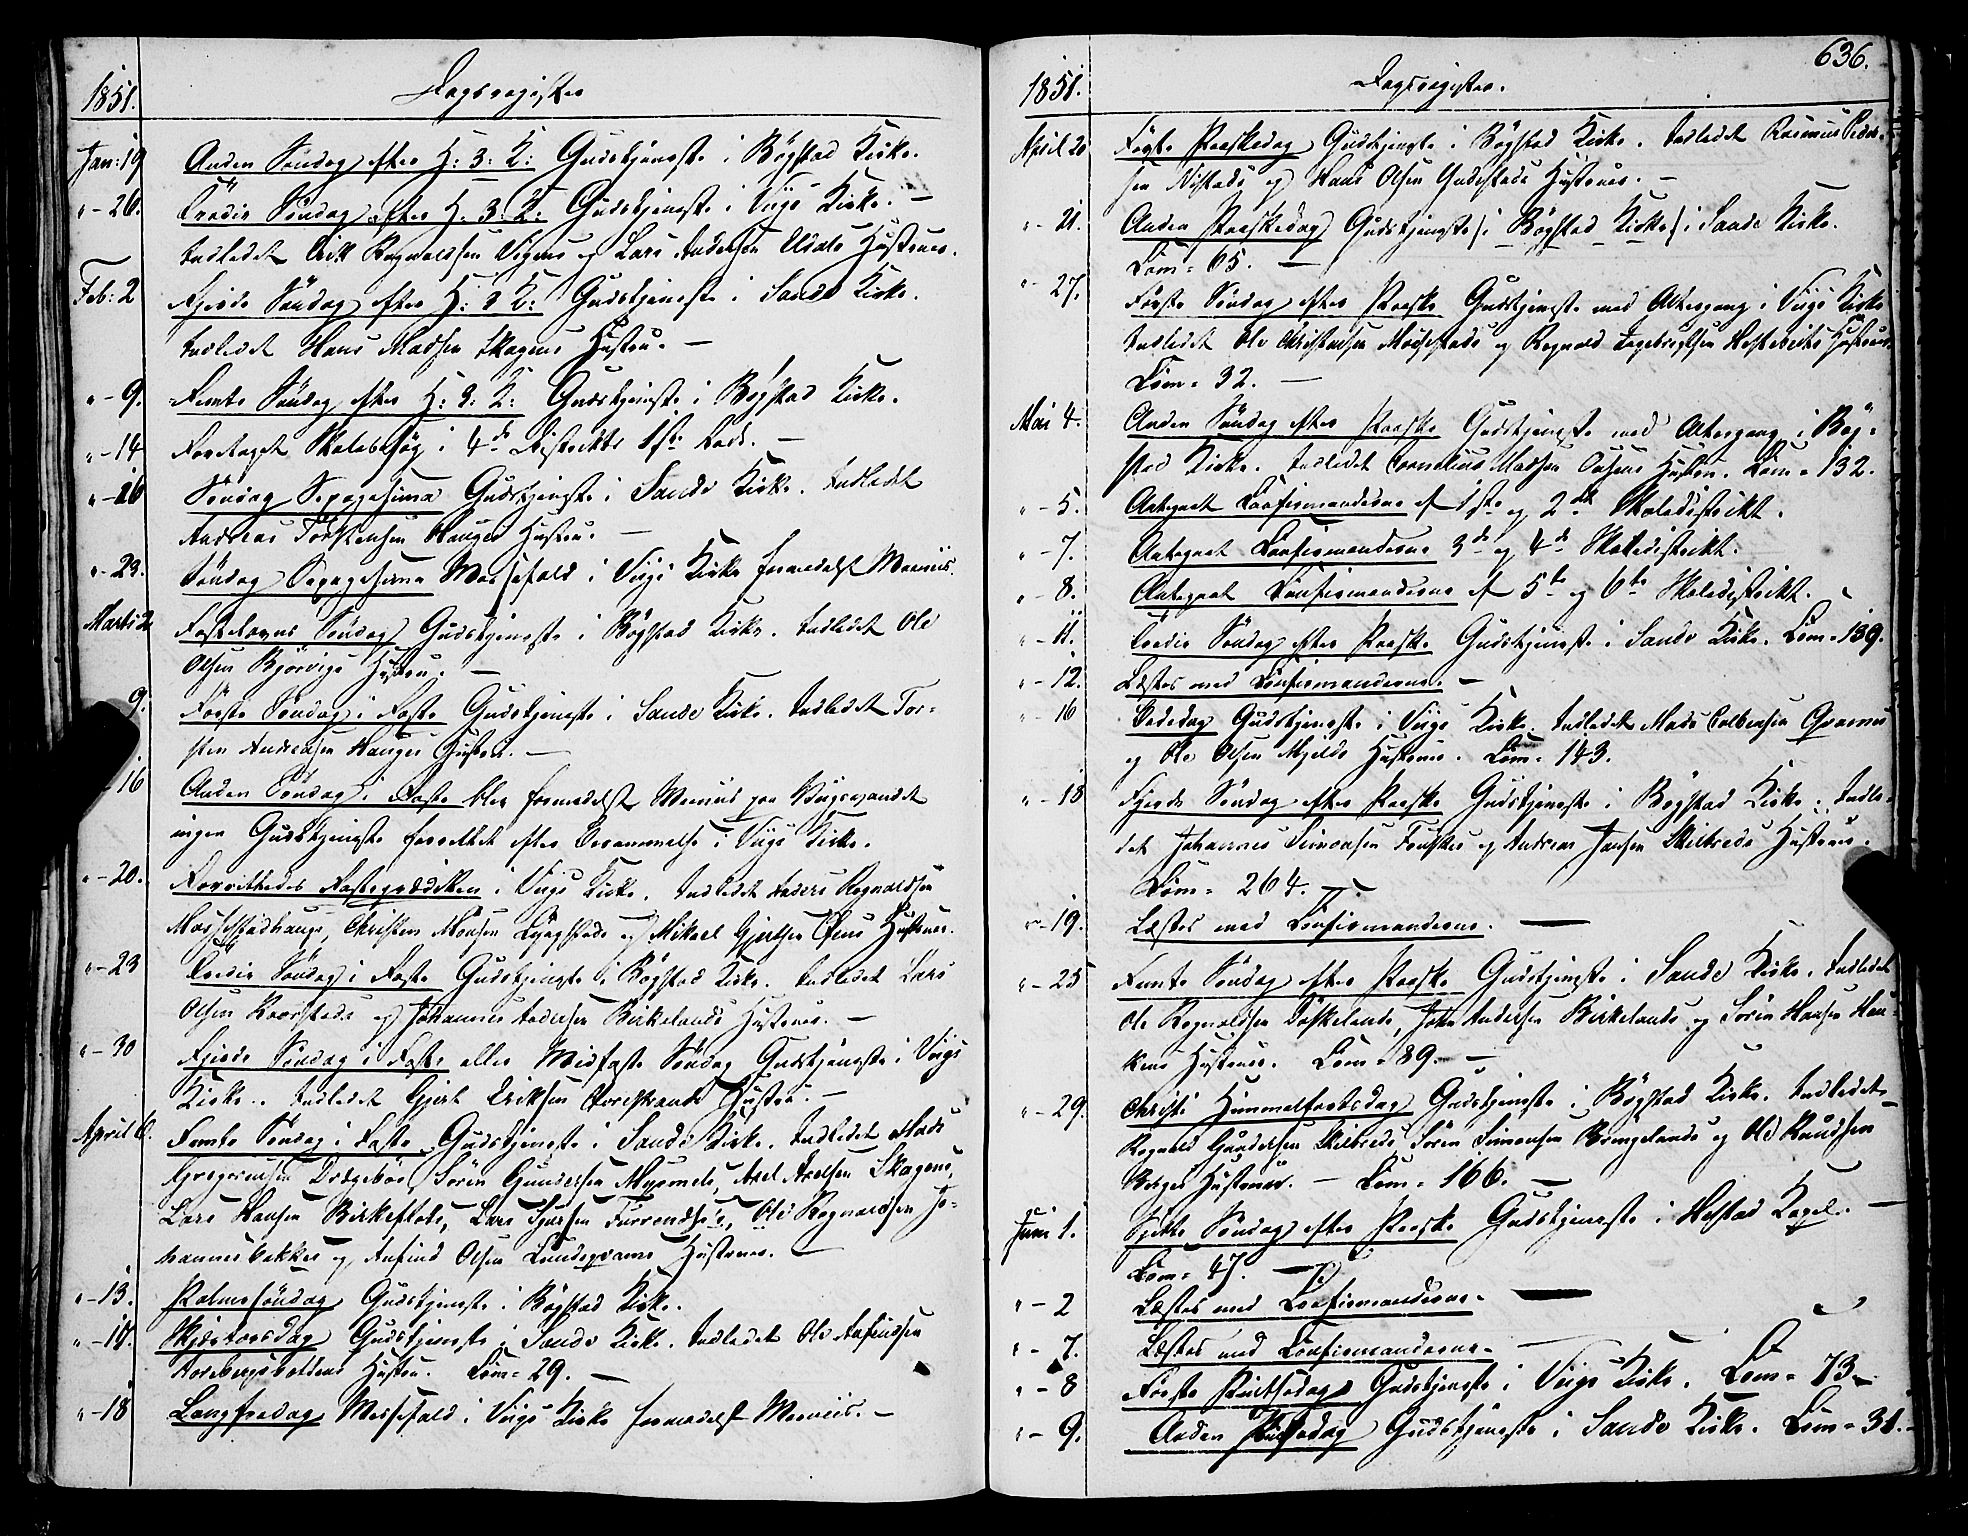 1851.
Dagsregister
Jan: 19 Anden Søndag efter H: 3: K: Gudstjeneste i Bøgstad Kirke.
" - 26. Tredie Søndag efter H. 3: K: Gudstjeneste i Viigs Kirke. —
Indledet Erik Ragnvaldsen Vigens og Lars Andersen Eldals Hustruer.
Feb: 2 Fjerde Søndag efter H: 3 K: Gudstjeneste i Sande Kirke.
Indledet Hans Madsen Skagens Hustru. —
" - 9. Femte Søndag efter H: 3: K: Gudstjeneste i Bøgstad Kirke.
" - 14 Foretaget Skolebesøg i 4de Distrikts 1ste Rode. —
" - 16 Søndag Septagesima Gudstjeneste i Sande Kirke. Indledet
Andreas Torstensen Hauges Hustru. —
" - 23. Søndag Sexagesima Messefald i Viigs Kirke formedelst Meeniis.
Marts 2 Fastelavns Søndag Gudstjeneste i Bøgstad Kirke. Indledet Ole
Olsen Bjørvigs Hustru. —
9. Første Søndag i Faste Gudstjeneste i Sande Kirke. Indledet Tor-
sten Andreasen Hauges Hustru. —
" - 16 Anden Søndag i Faste blev formedelst Meeniis paa Viigsvandet
ingen Gudstjeneste forrettet efter Berammelse i Viigs Kirke.
" - 20. Forrettedes Fasteprædiken i Viigs Kirke. Indledet Anders Ragnvaldsen
Mosfestadhaugs, Christen Monsen Lyngstads og Mikael Gjertsen Øens Hustruer.
" - 23 Tredie Søndag i Faste Gudstjeneste i Bøgstad Kirke. Indledet Lars
Olsen Roorstads og Johannes Andersen Birkelands Hustruer. —
" - 30 Fjerde Søndag i Faste eller Midfaste Søndag Gudstjeneste i Viigs
Kirke. Indledet Gjert Eriksen Hustru. —
April 6. Femte Søndag i Faste Gudstjeneste i Sande Kirke. Indledet Mads
Gregoriussen Drægebøe, Sørin Gundersen Myremels, Axel Axelsen Skagens,
Lars Hansen Birkeflots, Lars Sjursen Ole Ragnvaldsen Jo-
hannesbakkes og Anfind Olsen Hustruer. —
" - 13. Palmesøndag Gudstjeneste i Bøgstad Kirke.
" - 17. Skjærtorsdag Gudstjeneste i Sande Kirke. Indledet Ole Anfindsen
Hustru. Com = 29. —
" - 18 Langfredag Messefald i Viigs Kirke formedelst Meeniis. —
636.
1851.
Dagsregister.
April 20 Første Paaskedag Gudstjeneste i Bøgstad Kirke. Indledet Rasmus Peder-
sen Nistads og Hans Olsen Indrestads Hustruer. —
" - 21. Anden Paaskedag Gudstjeneste (i Bøgstad Kirke) i Sande Kirke.
Com = 65. —
" - 27. Første Søndag efter Paaske Gudstjeneste med Altergang i Viigs Kirke
Indledet Ole Christensen og Ragnvald Ingebrigtsen Hestebeits Hustruer.
Com = 32. —
Mai 4. Anden Søndag efter Paaske Gudstjeneste med Altergang i Bøg-
stad Kirke. Indledet Cornelius Madsen Hustru. Com = 132.
" - 5. Antegnet Confirmanderne af 1ste og 2det Skoledistrikt.
" - 7. Antegnet Confirmanderne 3de og 4de Skoledistrikt.
" - 8. Antegnet Confirmanderne af 5te og 6te Skoledistrikt.
" - 11. Tredie Søndag efter Paaske Gudstjeneste i Sande Kirke. Com = 139.
" - 12. Læstes med Confirmanderne. —
" - 16 Bededag Gudstjeneste i Viigs Kirke. Indledet Mads Colbensen Qvams
og Ole Olsen Mjelds Hustruer. Com = 143.
" - 18 Fjerde Søndag efter Paaske Gudstjeneste i Bøgstad Kirke. Indle-
det Johannes Simonsen og Andreas Jansen Skilbreds Hustruer.
Com = 264. —
" - 19. Læstes med Confirmanderne. —
" - 25 Femte Søndag efter Paaske Gudstjeneste i Sande Kirke. Indledet
Ole Ragnvaldsen Døskelands, John Andersen Birkelands og Sørin Hansen Hau-
kens Hustruer. Com = 89. —
" - 29. Christi Himmelfartsdag Gudstjeneste i Bøgstad Kirke. Indledet
Ragnvald Gundersen Skilbreds Sørin Simonsen Bringelands og Ole Knudsen
Berges Hustruer. — Com = 166. —
Juni 1. Sjette Søndag efter Paaske Gudstjeneste i Holstad Kapel. —
Com = 47. —
" - 2 Læstes med Confirmanderne. —
" - 7. Læstes med Confirmanderne. —
" - 8 Første Pintsedag Gudstjeneste i Viigs Kirke. Com = 73. —
" - 9. Anden Pintsedag Gudstjeneste i Sande Kirke. Com = 31. —